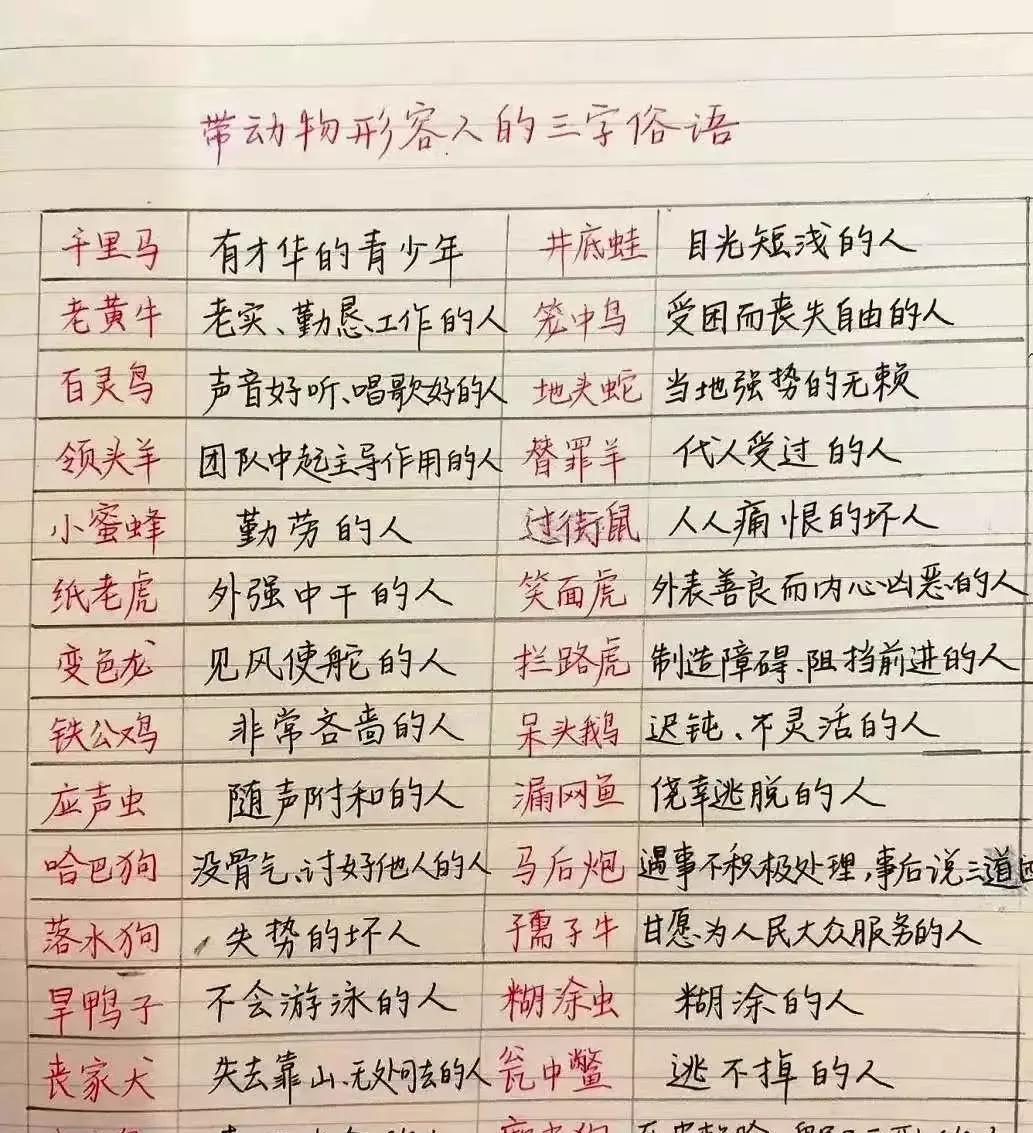 带动物形容人的三字俗语
千里马 有才华的青少年 井底蛙 目光短浅的人
老黄牛 老实、勤恳工作的人 笼中鸟 受困而丧失自由的人
百灵鸟 声音好听、唱歌好的人 地头蛇 当地强势的无赖
领头羊 团队中起主导作用的人 替罪羊 代人受过的人
小蜜蜂 勤劳的人 过街鼠 人人痛恨的坏人
纸老虎 外强中干的人 笑面虎 外表善良而内心凶恶的人
变色龙 见风使舵的人 拦路虎 制造障碍、阻挡前进的人
铁公鸡 非常吝啬的人 呆头鹅 迟钝、不灵活的人
应声虫 随声附和的人 漏网鱼 侥幸逃脱的人
哈巴狗 没骨气、讨好他人的人 马后炮 遇事不积极处理,事后说三道
落水狗 失势的坏人 孺子牛 甘愿为人民大众服务的人
旱鸭子 不会游泳的人 糊涂虫 糊涂的人
丧家犬 失去靠山、无处可去的人 瓮中鳖 逃不掉的人